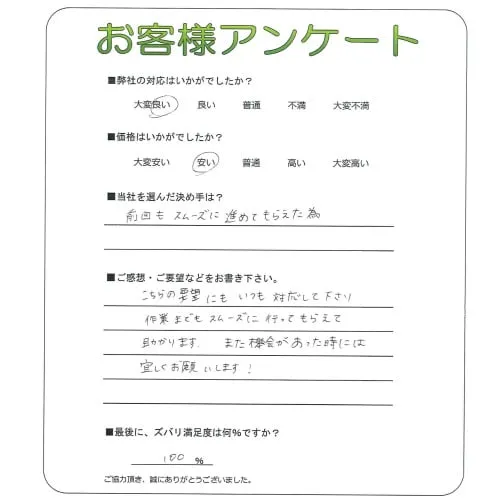 お客様アンケート
■弊社の対応はいかがでしたか？
大変良い 良い 普通 不満 大変不満
■価格はいかがでしたか？
大変安い 安い 普通 高い 大変高い
■当社を選んだ決め手は？
前回も スムーズに 進めてもらえた為
■ご感想・ご要望などをお書き下さい。
こちらの要望にも いつも 対応して下さり
作業までも スムーズに 行ってもらえて
助かります． また 機会が あった時には
宜しくお願いします！
■最後に、ズバリ満足度は何％ですか？
100 %
ご協力頂き、誠にありがとうございました。